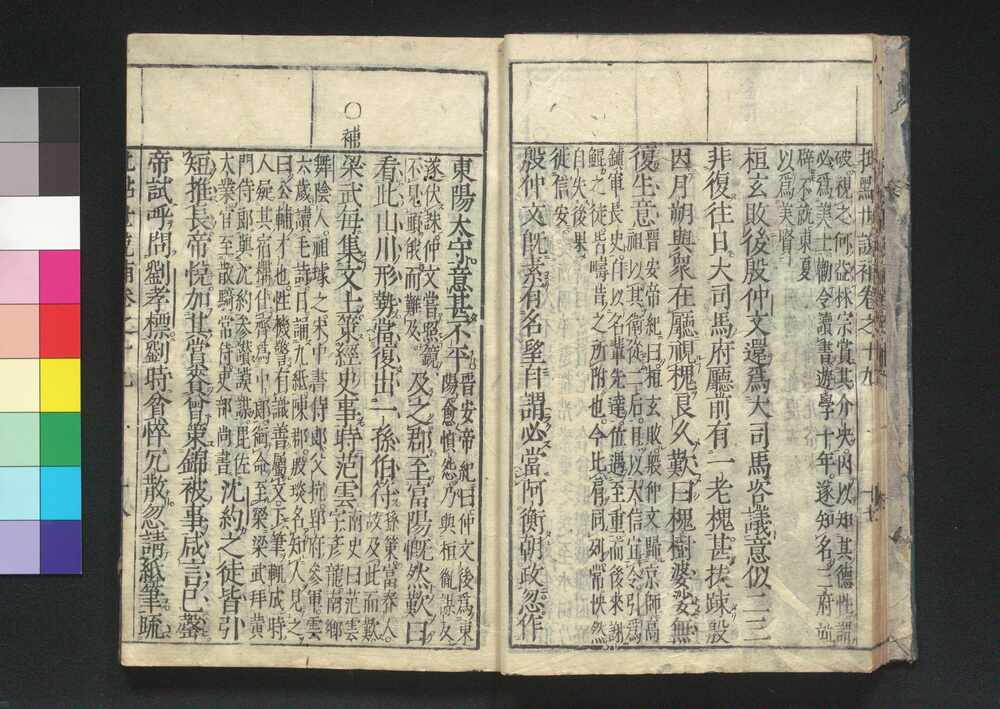 批點世說補卷之十九
破視之何益林宗賞其介決因以知其德性謂
必爲美士勸令讀書遊學十年遂知名三府並
辟不就東夏
以爲美賢
桓玄敗後殷仲文還爲大司馬咨議意似二三
非復往日大司馬府廳前有一老槐甚扶踈殷
因月朔與衆在廳視槐良久歎曰槐樹婆娑無
復生意
晋安帝紀曰桓玄敗殷仲文歸京師高
祖以其衛從二后且以大信宜令引爲
鎮軍長史自以名輩先達位遇至重而後來謝
鯤之徒皆疇昔之所附也今比肩同列常怏然
自失後果
徙信安
殷仲文既素有名望自謂必當阿衡朝政忽作
東陽太守意甚不平
晋安帝紀曰仲文後爲東
陽愈憤怨乃與桓胤謀反
遂伏誅仲文嘗照鏡
不見頭俄而難及
及之郡至富陽慨然歎曰
看此山川形勢當復出一孫伯符
孫策富春人
故及此而歎
○補
梁武每集文士策經史事時范雲
南史曰范雲
字彥龍南鄉
舞陰人祖璩之宋中書侍郎父抗郢府參軍雲
六歲讀毛詩日誦九紙陳郡殷琰名知人見之
曰公輔才也性機警有識善屬文下筆輒成時
人疑其宿構仕齊爲中郎衛命至梁梁武拜黃
門侍郎與沈約參讚謀謨毘佐
大業官至散騎常侍吏部尚書
沈約之徒皆引
短推長帝悅加其賞賚曾策錦被事咸言已罄
帝試呼問劉孝標劉時貧悴冗散忽請紙筆疏